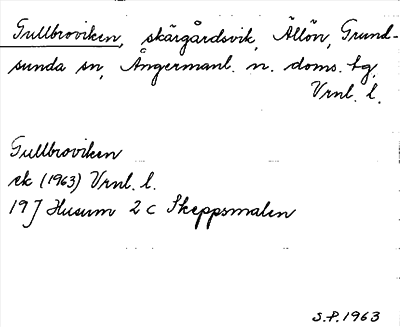 Gullbroviken, skärgårdsvik, Ällön, Grund-
sunda sn, Ångermanl. n. doms. tg,
Vrnl. l.
Gullbroviken
ek (1963) Vrnl. l.
19J Husum 2 c Skeppsmalen
S.P. 1963